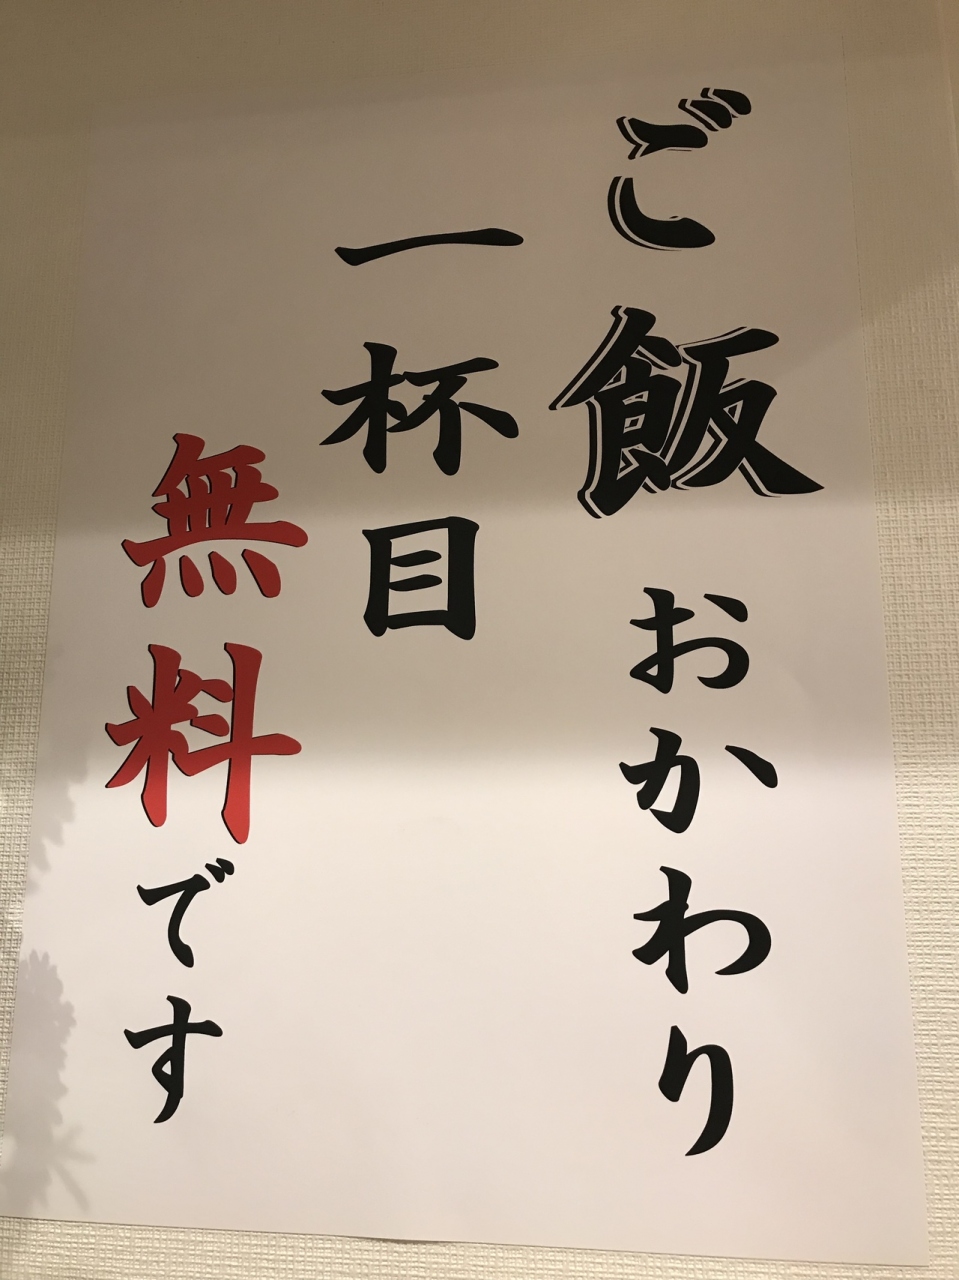 ご飯おかわり
一杯目
無料です